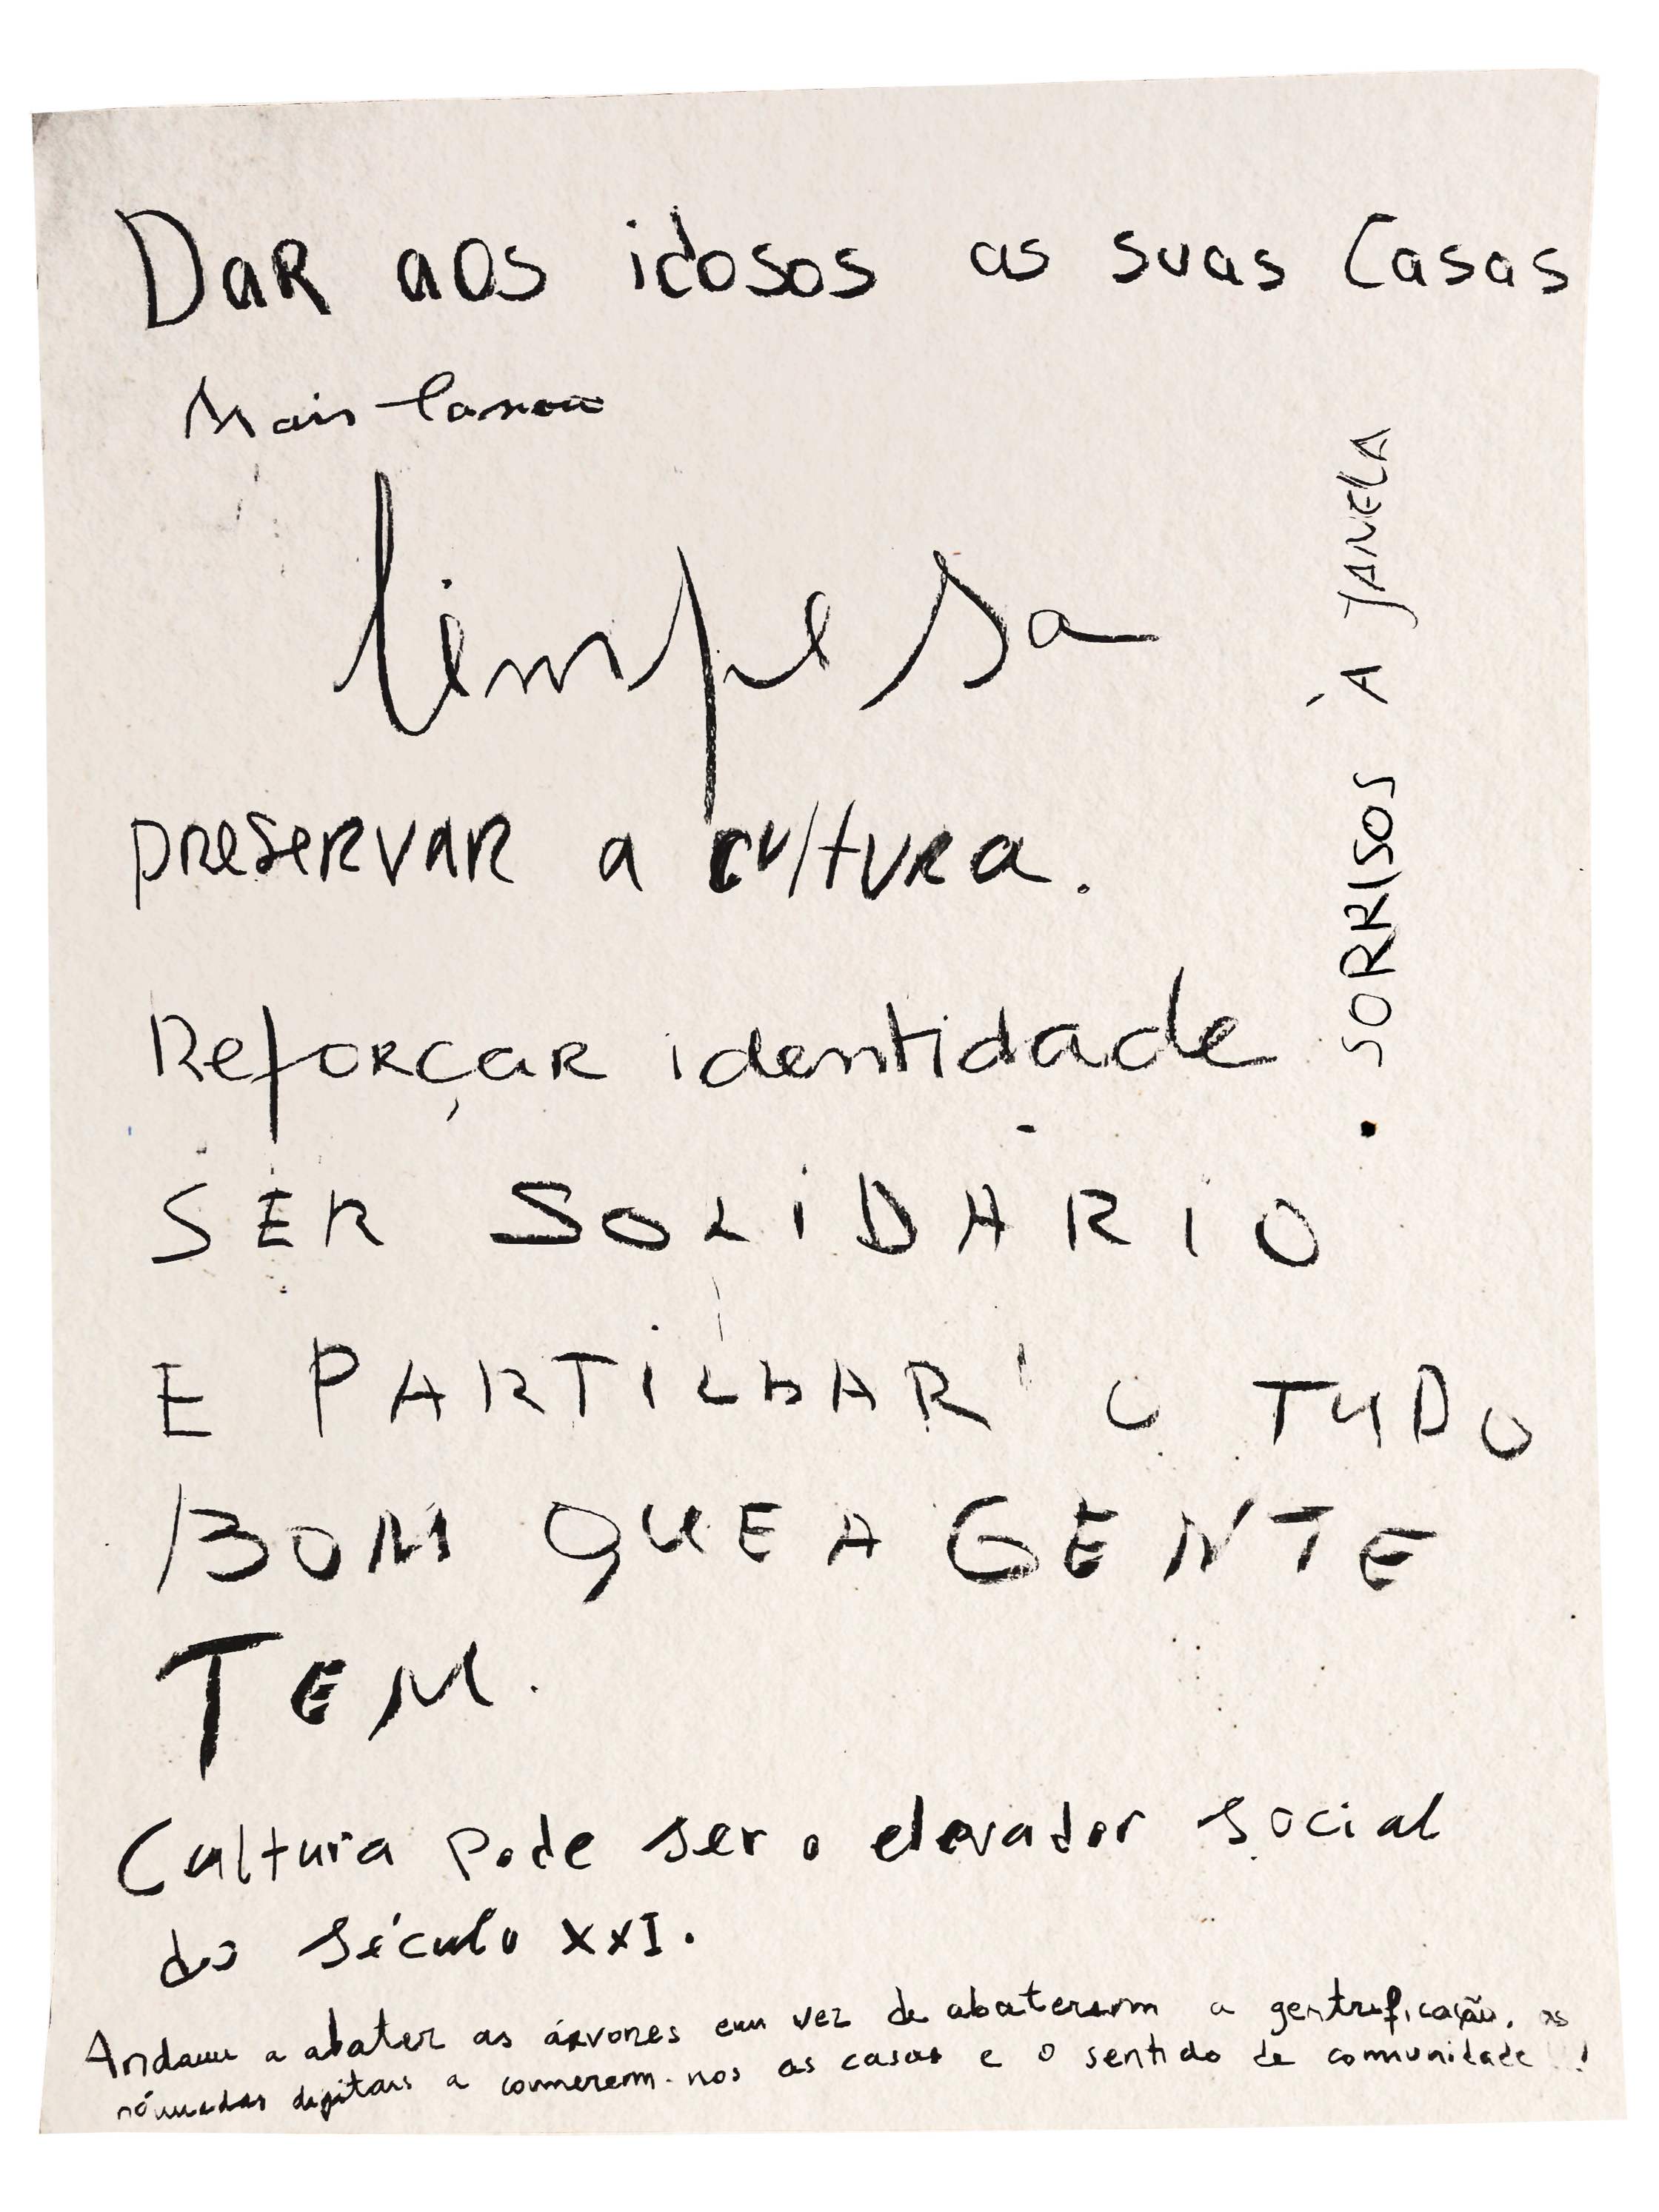 Dar aos idosos as suas Casas
Mais
limpesa
preservar a cultura.
Reforçar identidade
SER SOLIDARIO
E PARTILHAR O TUDO
BOM QUE A GENTE
TEM.
Cultura pode ser o elevador social
do século XXI.
Andam a abater as árvores em vez de abaterem a gentrificação, os
nómadas digitais a comerem-nos as casas e o sentido de comunidade!!
. SORRISOS À JANELA